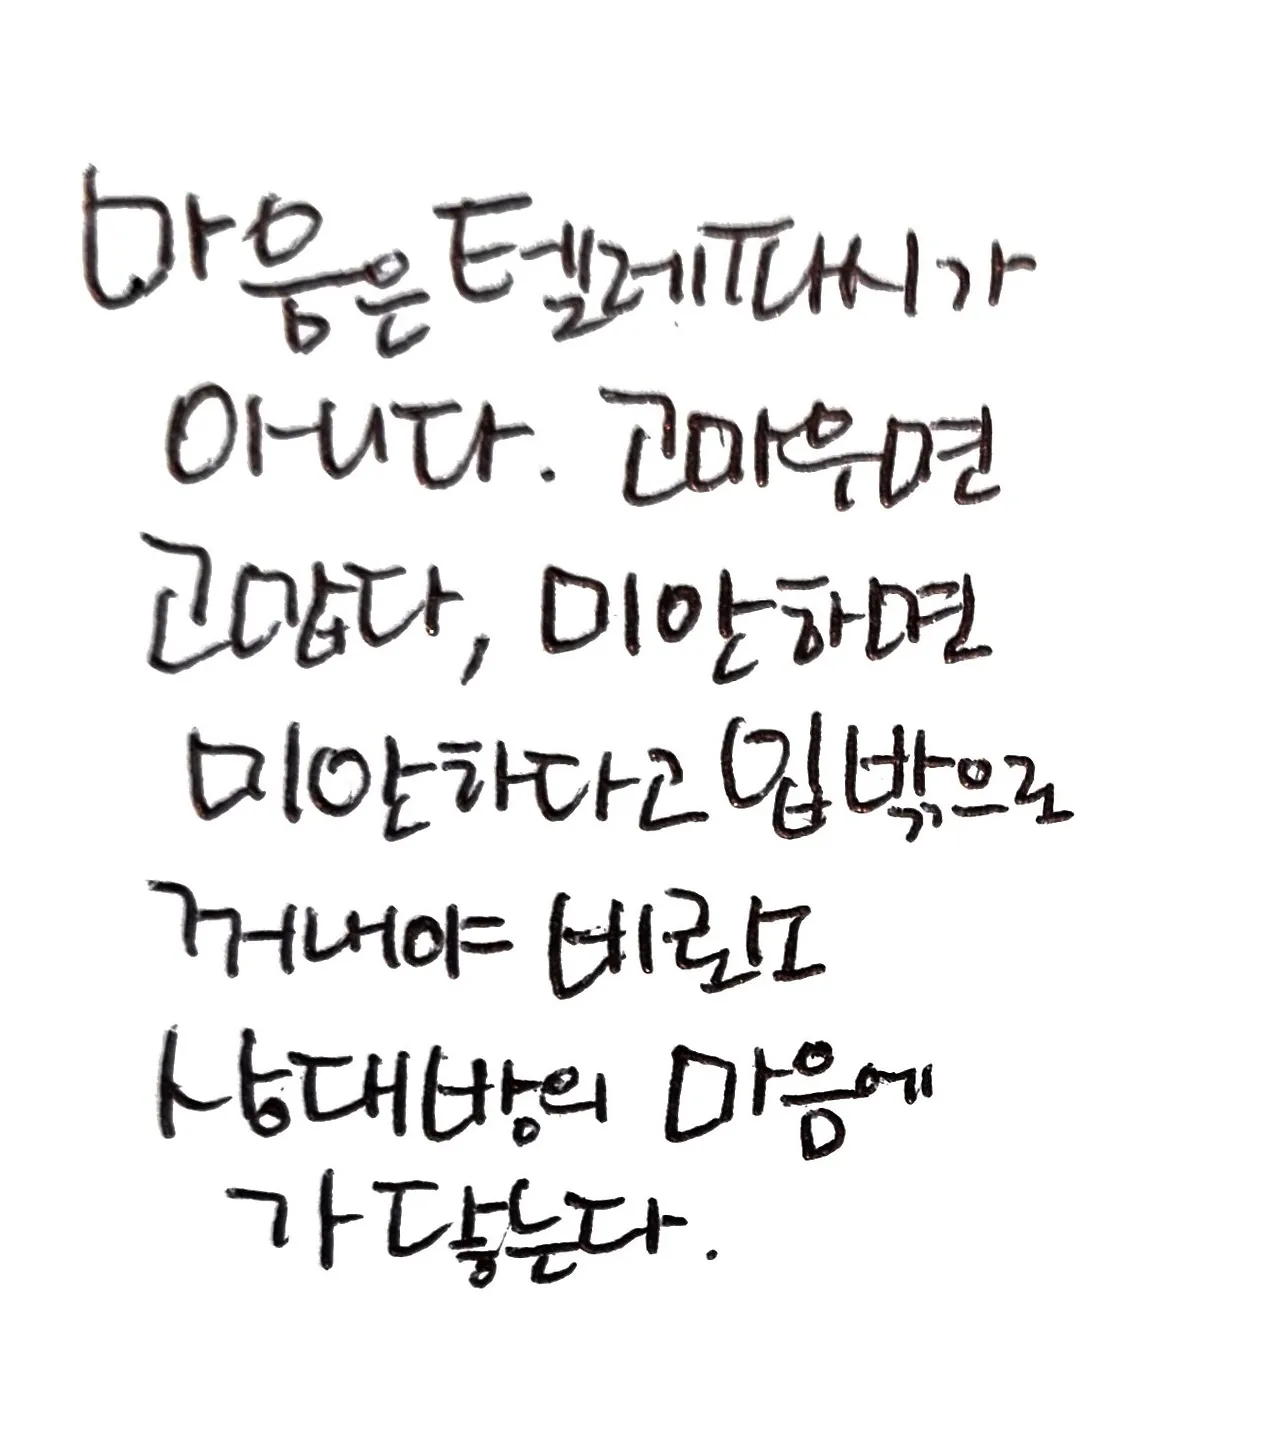 마음은 텔레파시가
아니다. 고마우면
고맙다, 미안하면
미안하다고 입 밖으로
꺼내야 비로소
상대방의 마음에
가 닿는다.